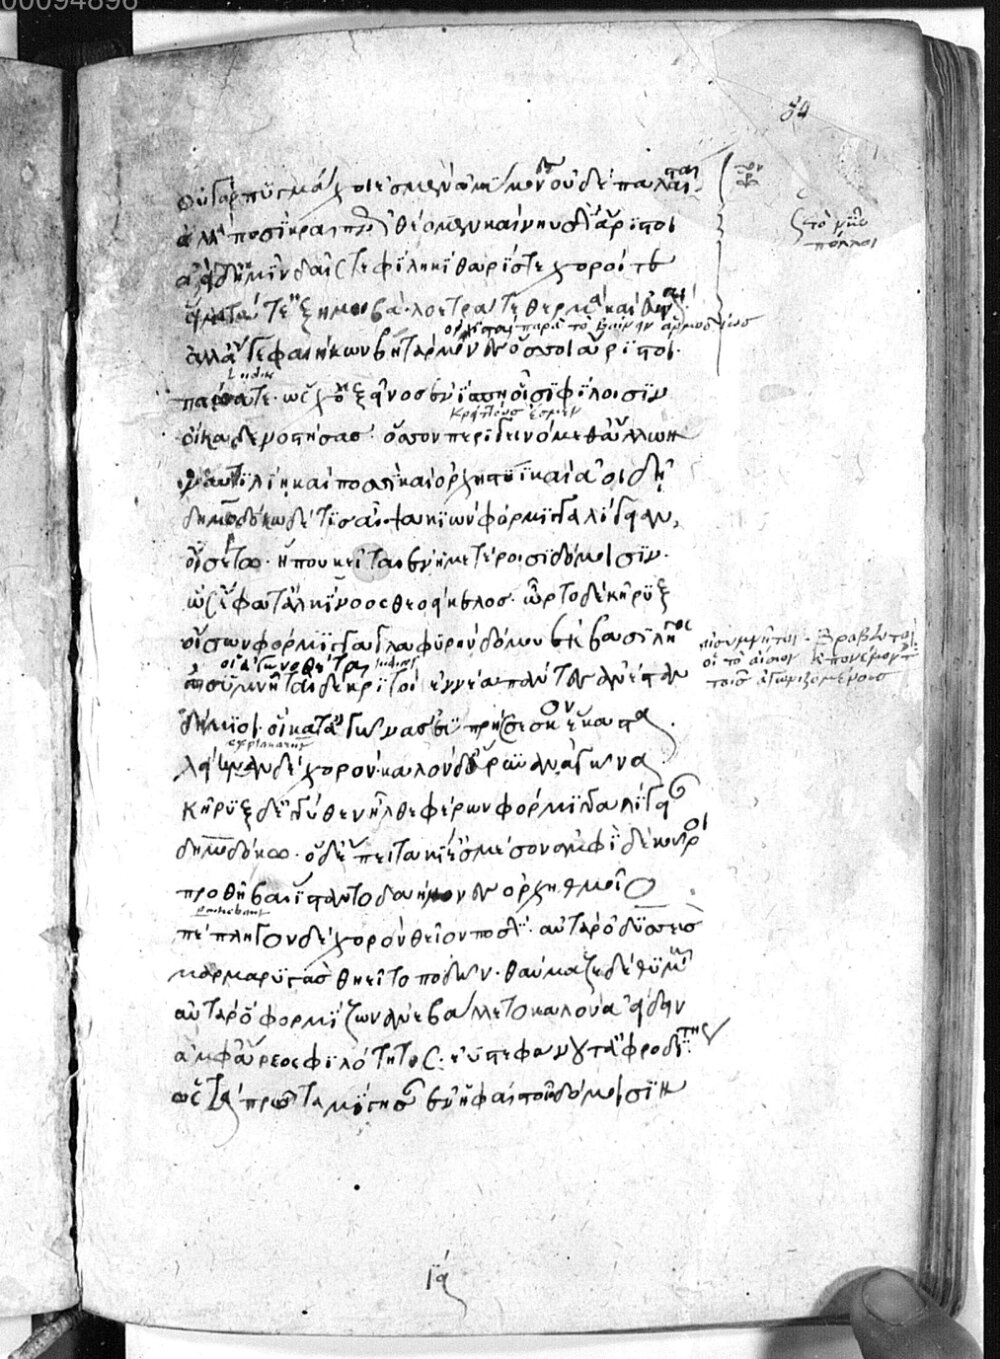 00094896
84
οὐ γὰρ πυγμάχοι εἰμὲν ἀμύμονες οὐδὲ παλαισταί
ἀλλὰ ποσὶ κραιπνῶς θέομεν καὶ νηυσὶν ἄριστοι
αἰεὶ δ' ἡμῖν δαίς τε φίλη κίθαρίς τε χοροί τε
εἵματά τ' ἐξημοιβὰ λοετρά τε θερμὰ καὶ εὐναί
ἀλλ' ἄγε φαιήκων βητάρμονες ὅσσοι ἄριστοι
παίσατε. ὥς χ' ὁ ξεῖνος ἐνίσπῃ οἷσι φίλοισιν
οἴκαδε νοστήσας. ὅσσον περιγεινόμεθ' ἄλλων
ναυτιλίῃ καὶ ποσσὶ καὶ ὀρχηστυῖ καὶ ἀοιδῇ
δημοδόκῳ δέ τις αἶψα κιὼν φόρμιγγα λίγειαν
οἰσέτω. ἥ που κεῖται ἐν ἡμετέροισι δόμοισιν.
ὣς ἔφατ' ἀλκίνοος θεοείκελος. ὦρτο δὲ κῆρυξ
οἴσων φόρμιγγα γλαφυρὴν δόμου ἐκ βασιλῆος
αἰσυμνῆται δὲ κριτοὶ ἐννέα πάντες ἀνέσταν
δήμιοι. οἳ κατ' ἀγῶνας ἐὺ πρήσσεσκον ἕκαστα.
λείηναν δὲ χορόν. καλὸν δ' εὔρυναν ἀγῶνα
κῆρυξ δ' ἐγγύθεν ἦλθε φέρων φόρμιγγα λίγειαν
δημοδόκῳ. ὁ δ' ἔπειτα κί' ἐς μέσον ἀμφὶ δὲ κοῦροι
πρωθῆβαι ἵσταντο δαήμονες ὀρχηθμοῖο
πέπληγον δὲ χορὸν θεῖον ποσίν. αὐτὰρ ὀδυσσεὺς
μαρμαρυγὰς θηεῖτο ποδῶν. θαύμαζε δὲ θυμῷ
αὐτὰρ ὁ φορμίζων ἀνεβάλλετο καλὸν ἀείδειν
ἀμφ' ἄρεος φιλότητος. εὐστεφάνου τ' ἀφροδίτης
ὡς τὰ πρῶτα μίγησαν ἐν ἡφαίστου δόμοισιν
τὸ
πολλοὶ
παρὰ τὸ βαίνειν
οἱ ἀγωνοθέται
αἰσυμνῆται. βραβευταὶ
οἱ τὸ αἴσιον ἀπονέμοντες
τοῖς ἀγωνιζομένοις
ια